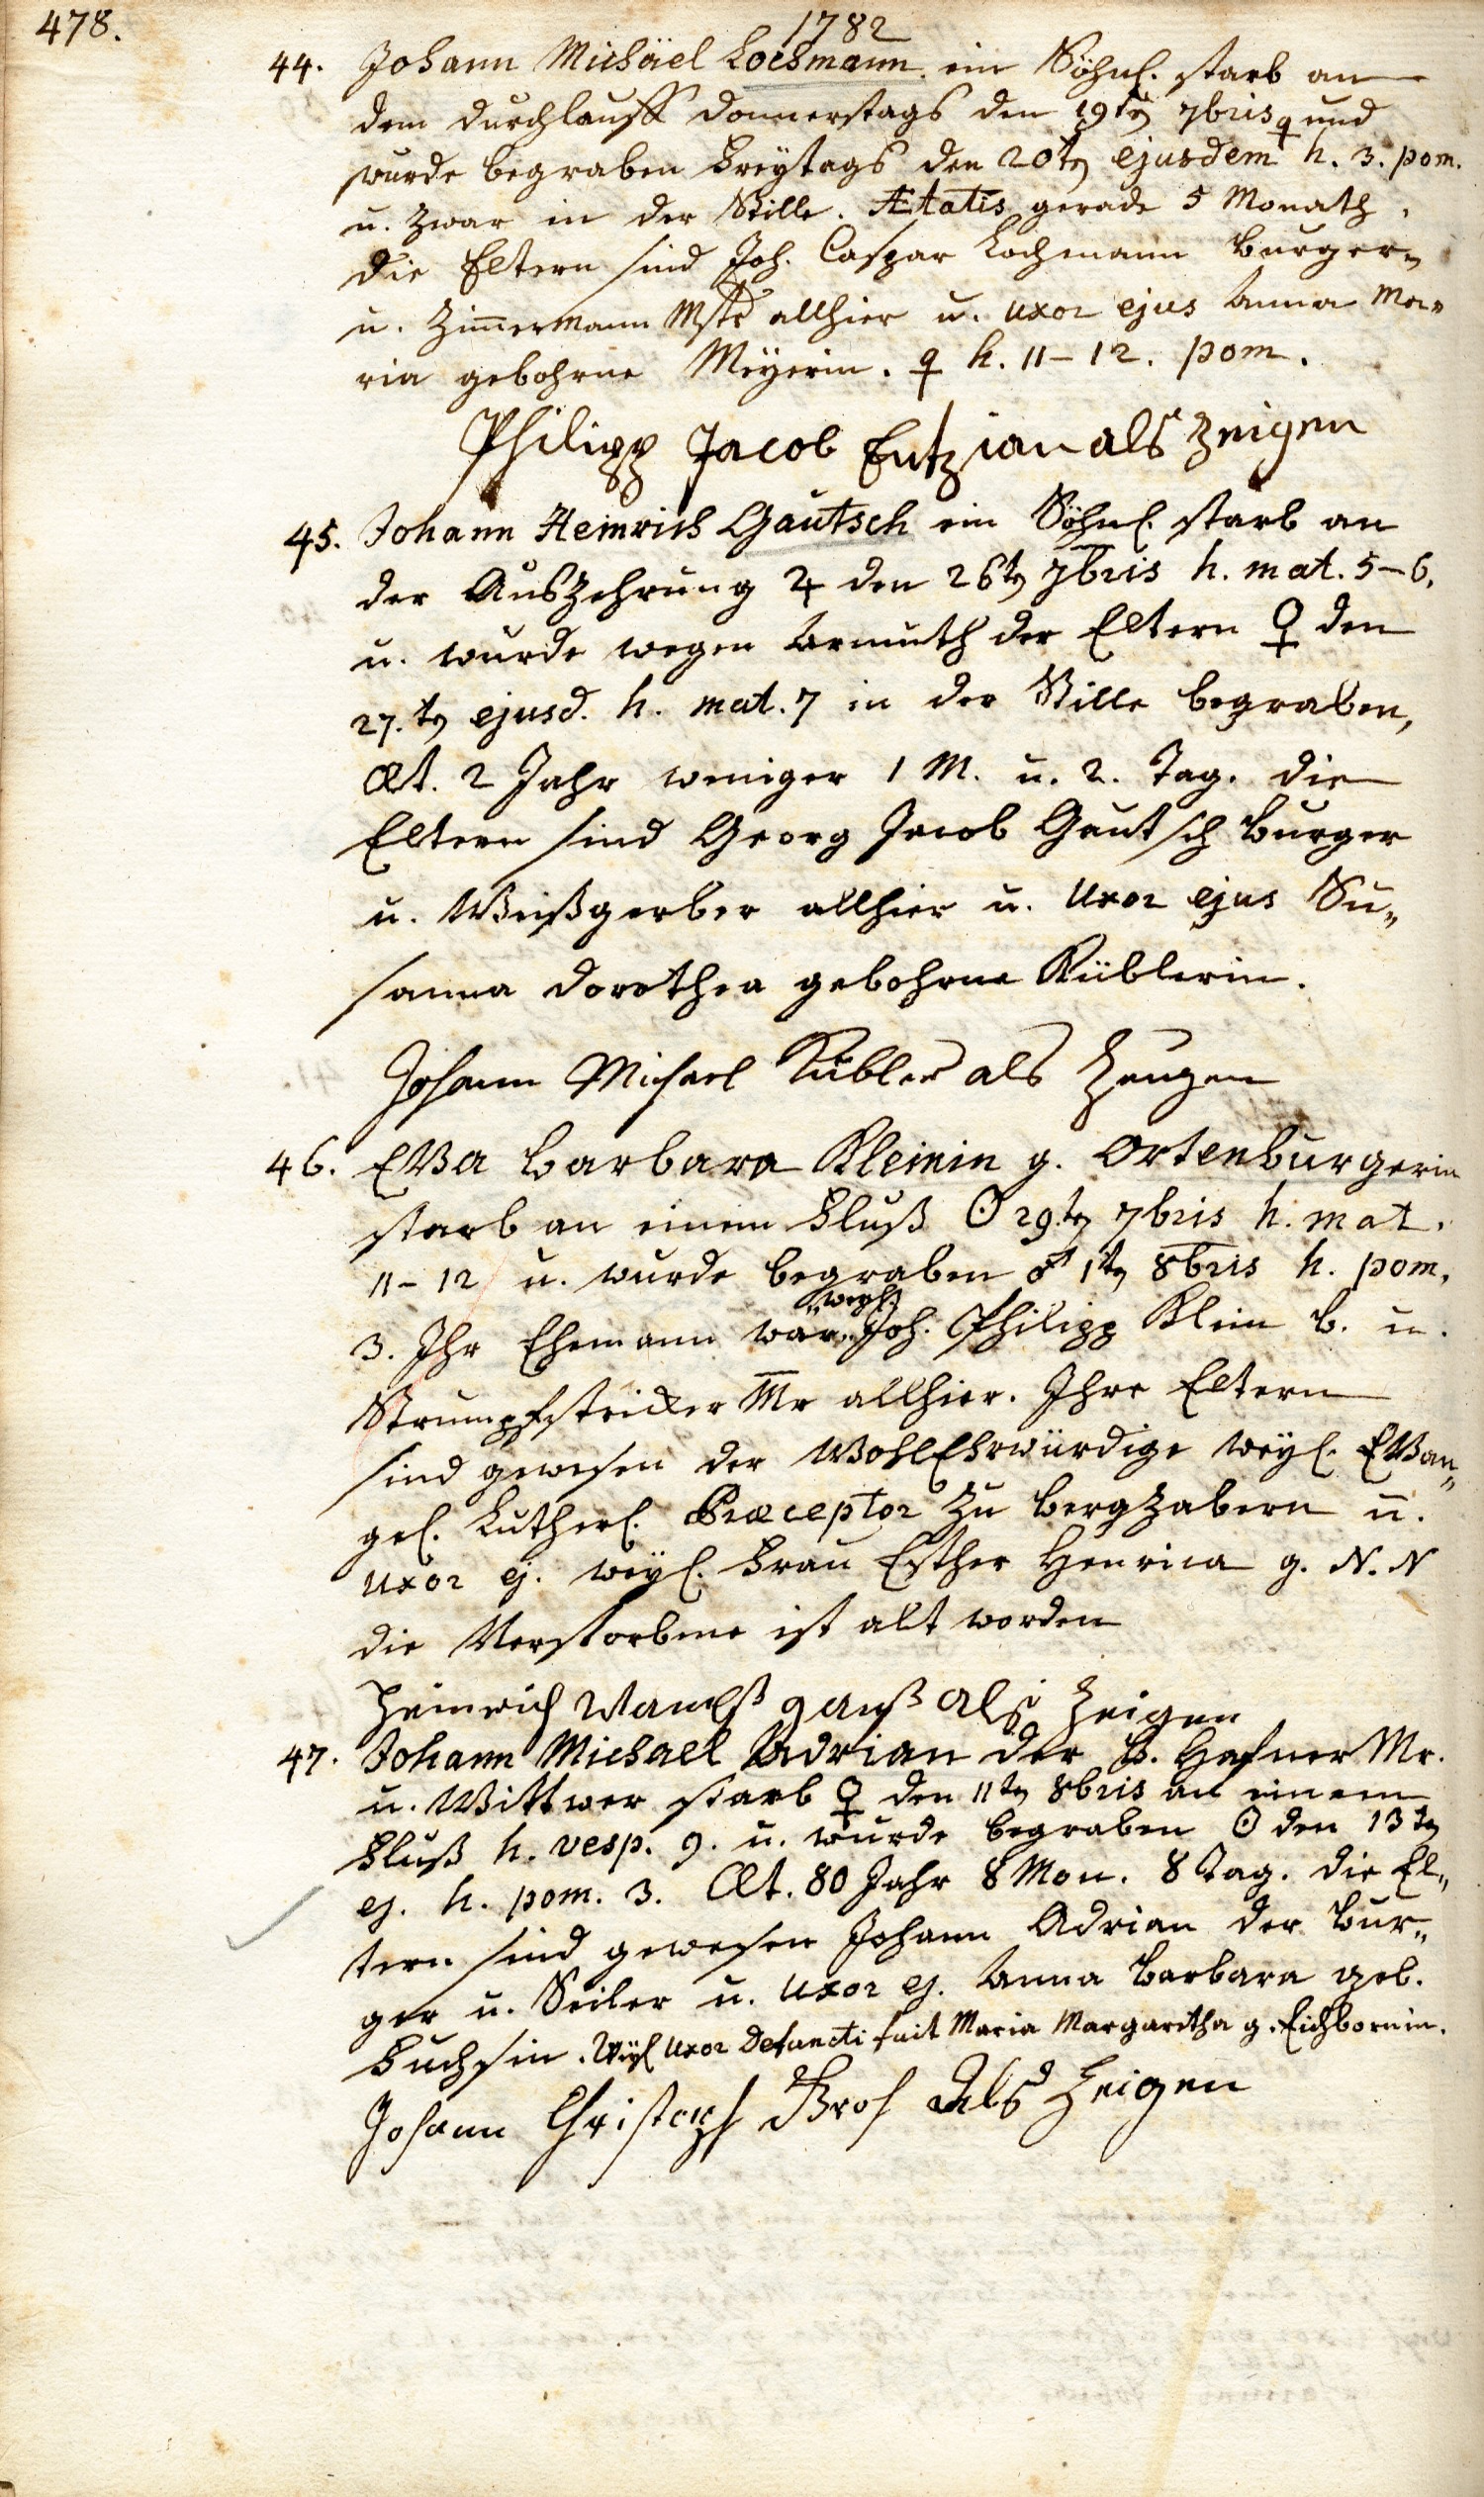 478.
1782
44. Johann Michäel Lochmann. ein Söhnl. starb an
dem durchlauff donnerstags den 19tn 7bris ♀ und
wurde begraben Freytags den 20tn ejusdem h. 3. pom.
u. zwar in der Stille. Ætatis gerade 5 Monath.
die Eltern sind Joh. Caspar Lochmann burger
u. Zim̄ermann Mstr allhier u. uxor ejus Anna Ma„
ria gebohrne Meyerin. ♀ h. 11–12. pom.
Philipp Jacob Entzian als zeigen
45. Johann Heinrich Gautsch ein Söhnl. starb an
der Auszehrung ♃ den 26tn 7bris h. mat. 5–6.
u. wurde wegen Armuth der Eltern ♀ den
27.tn ejusd. h. mat. 7 in der Stille begraben,
Æt. 2 Jahr weniger 1 M. u. 2. Tag. die
Eltern sind Georg Jacob Gautsch burger
u. Weißgerber allhier u. Uxor ejus Su„
sanna dorothea gebohrne Küblerin.
Johann Michael Kübler als Zeugen
46. EVa barbara Kleinin g. Ortenburgerin
starb an einem Fluß ☉ 29.tn 7bris h. mat.
11–12 u. wurde begraben ♂ 1tn 8bris h. pom.
weyl.
3. Ihr Ehemann war Joh. Philipp Klein b. u.
Strumpfstricker Mr allhier. Ihre Eltern
sind gewesen der WohlEhrwürdige weyl. EVan„
gel. Lutherl. Præceptor zu bergzabern u.
uxor ej. weyl. Frau Esther Henrica g. N. N
die Verstorbene ist alt worden
Heinrich ganß als Zeigen
47. Johann Michael Adrian der b. Hafner Mr.
u. Wittwer starb ♀ den 11tn 8bris an einem
Fluß h. vesp. 9. u. wurde begraben ☉ den 13tn
ej. h. pom. 3. Æt. 80 Jahr 8 Mon. 8 Tag. die El„
tern sind gewesen Johann Adrian der bur„
ger u. Seiler u. Uxor ej. Anna barbara geb.
Fuchsin. Weyl Uxor Defuncti fuit Maria Margaretha g. Eichbornin.
Johann Christoph Grof Als Zeigen